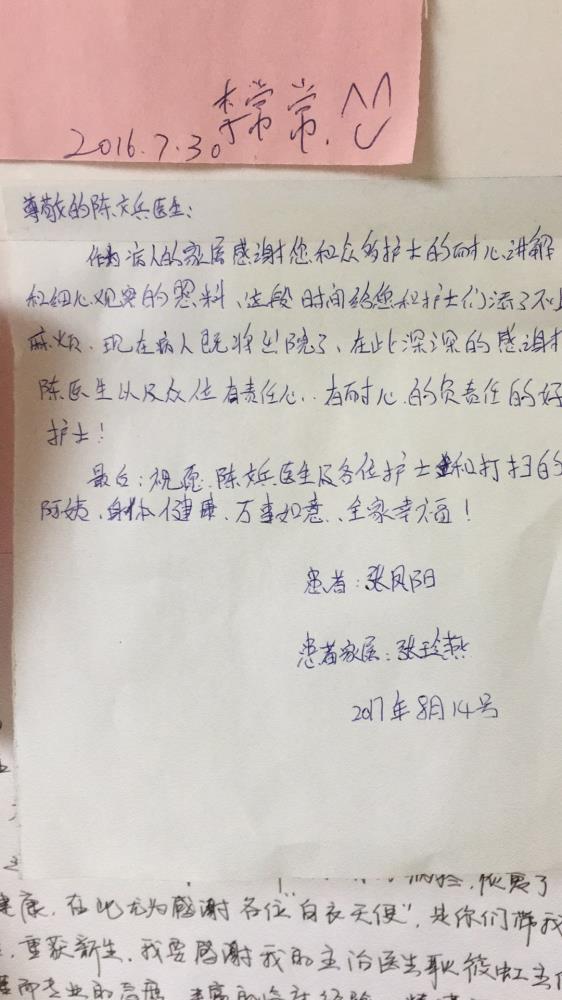 李常常.
2016.7.30
尊敬的陈文兵医生:
作为病人的家属感谢您和众多护士的耐心讲解
和细心观察的照料、这段时间给您和护士们添了不少
麻烦.现在病人既将出院了、在此深深的感谢
陈医生以及众位有责任心、有耐心的负责任的好
护士!
最后:祝愿陈文兵医生及各位护士和打扫的
阿姨、身体健康、万事如意、全家幸福!
患者:张凤阳
患者家属:张玲燕
2017年8月14号
恢复了
健康,在此尤为感谢各位白衣天使",是你们带我
重获新生,我要感谢我的主治医生耿筱虹主任